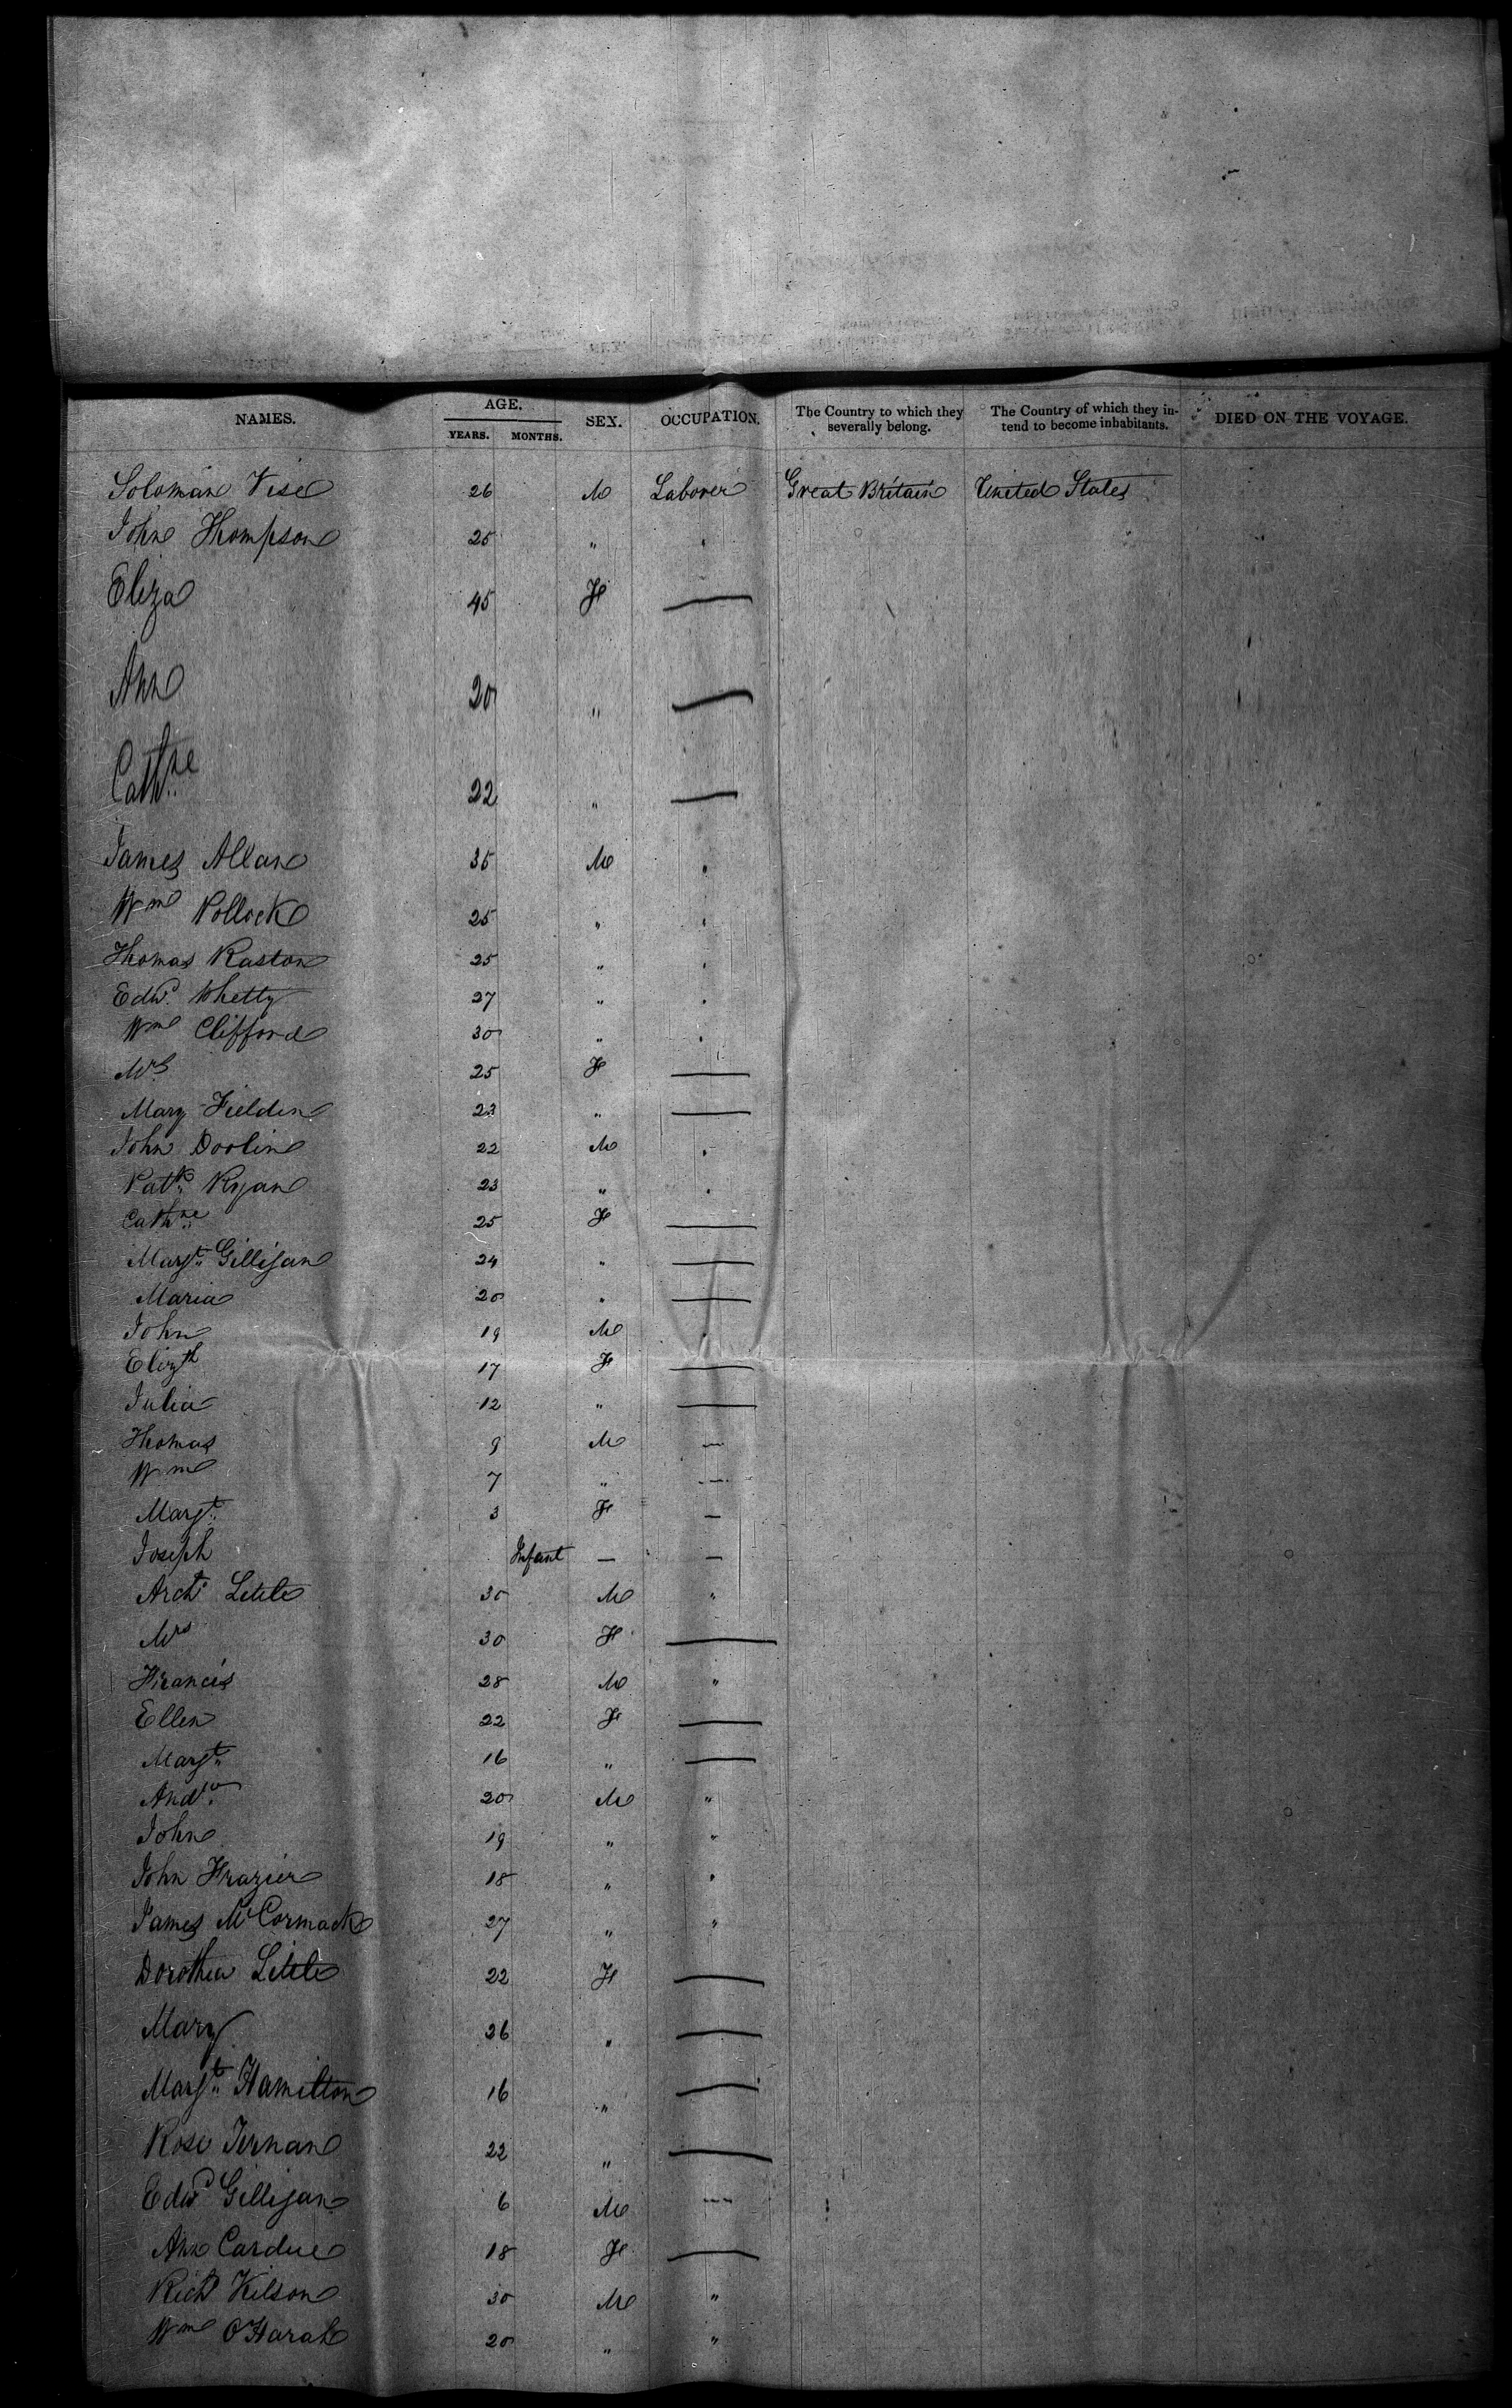 NAMES. AGE. YEARS. MONTHS. SEX. OCCUPATION. The Country to which they severally belong. The Country of which they intend to become inhabitants. DIED ON THE VOYAGE.
Soloman Vise 26 M Laborer Great Britain United States
John Thompson 25 " "
Eliza 45 F —
Ann 20 " —
Cathne 22 " —
James Allan 35 M "
Wm Pollock 25 " "
Thomas Raston 25 " "
Edwd Whetty 27 " "
Wm Clifford 30 " "
Mrs 25 F —
Mary Fielden 23 " —
John Doolin 22 M "
Patk Ryan 23 " "
Cathne 25 F —
Margt Gilligan 24 " —
Maria 20 " —
John 19 M "
Elizth 17 F —
Julia 12 " —
Thomas 9 M —
Wm 7 " —
Margt 3 F —
Joseph Infant — —
Archd Little 30 M "
Mrs 30 F —
Francis 28 M "
Ellen 22 F —
Margt 16 " —
Andw 20 M "
John 19 " "
John Frazier 18 " "
James McCormack 27 " "
Dorothea Little 22 F —
Mary 26 " —
Margt Hamilton 16 " —
Rose Ternan 22 " —
Edwd Gilligan 6 M —
Ann Cardue 18 F —
Richd Kilson 30 M "
Wm O'Harah 20 " "